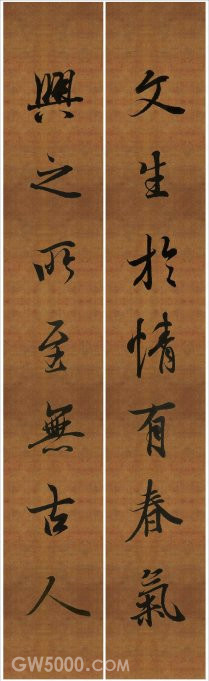 文生於情有春氣
興之所至無古人
GW5000.com